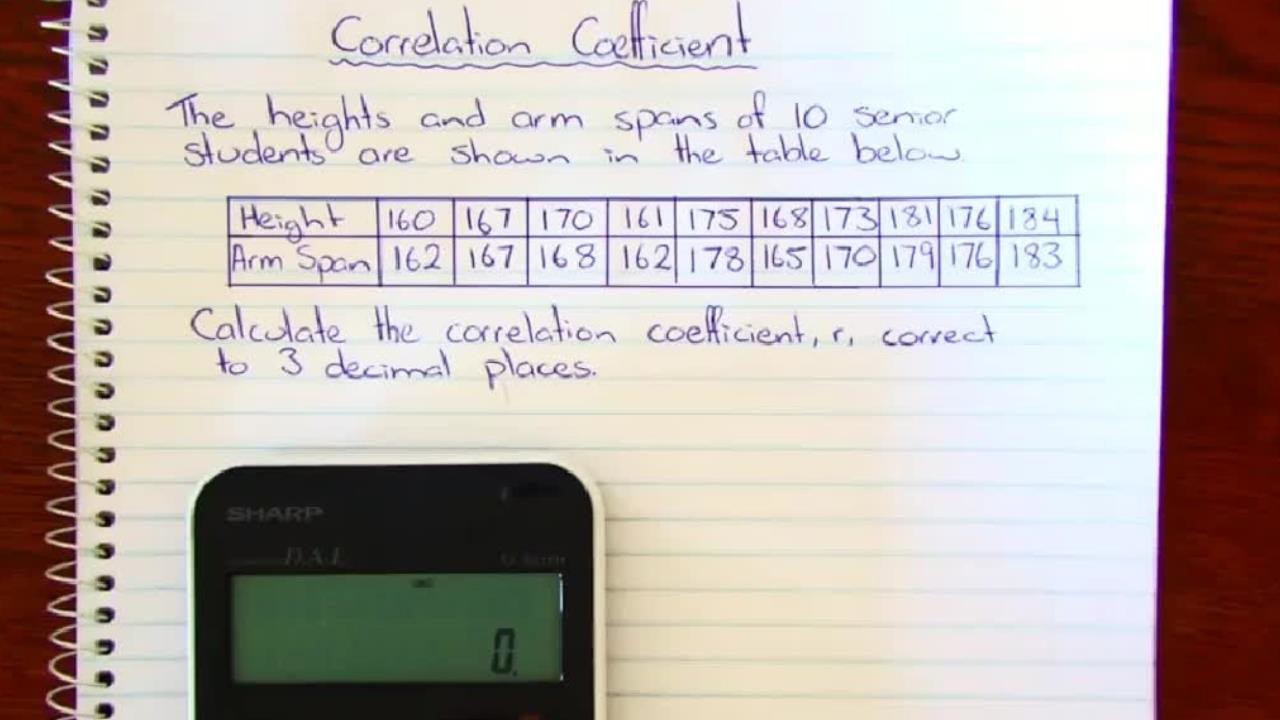 Correlation Coefficient
The heights and arm spans of 10 senior
students are shown in the table below
Height 160 167 170 161 175 168 173 181 176 184
Arm Span 162 167 168 162 178 165 170 179 176 183
Calculate the correlation coefficient, r, correct
to 3 decimal places.
SHARP
D.A.L.
0.